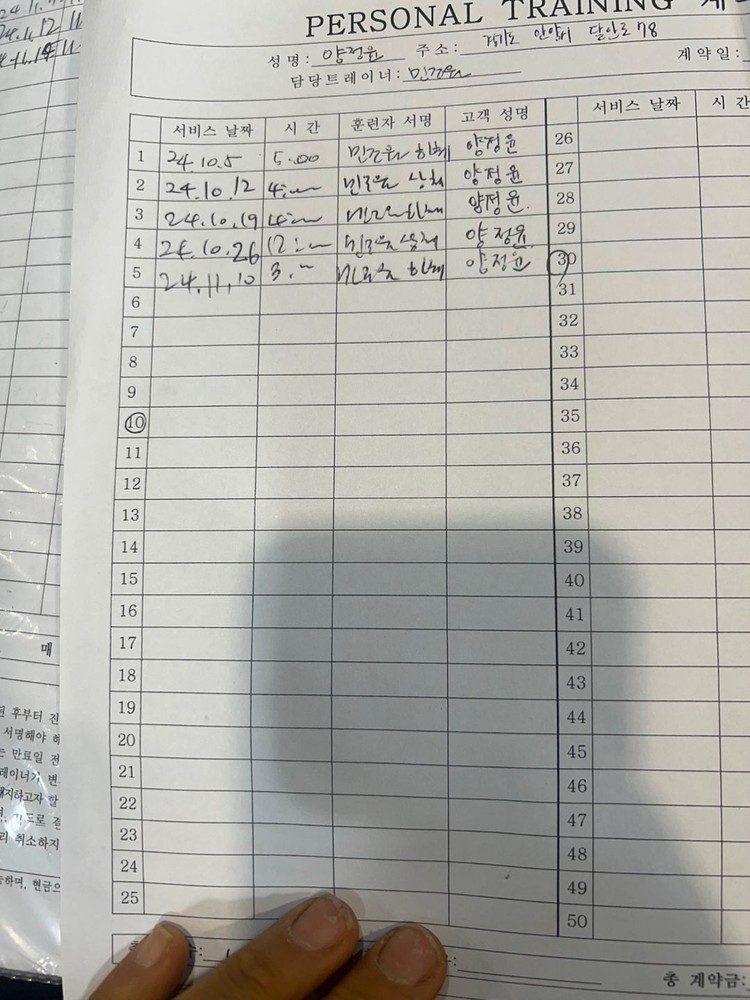 PERSONAL TRAINING
성명: 양정윤 주소: 경기도 안양시 달안로 78 계약일:
담당트레이너:
서비스 날짜 시 간 훈련자 서명 고객 성명 서비스 날짜 시 간
1 24.10.5 5:00 하체 양정윤 26
2 24.10.12 4: 상체 양정윤 27
3 24.10.19 4: 하체 양정윤 28
4 24.10.26 12: 상체 양정윤 29
5 24.11.10 3: 하체 양정윤 30
6 31
7 32
8 33
9 34
10 35
11 36
12 37
13 38
14 39
15 40
16 41
17 42
18 43
19 44
20 45
21 46
22 47
23 48
24 49
25 50
총 계약금:
24.11.12
매
후부터 진
서명해야
만료일 전
레이너가 변
해지하고자 할
취소하지
하며, 현금으